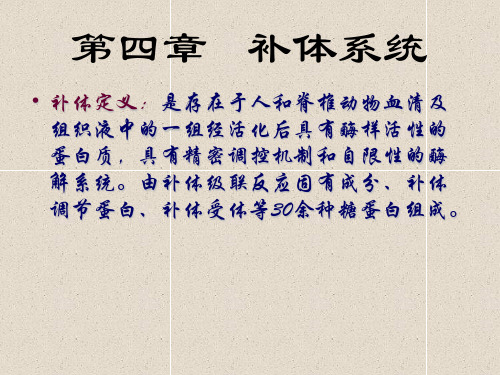 第四章 补体系统
• 补体定义：是存在于人和脊椎动物血清及
组织液中的一组经活化后具有酶样活性的
蛋白质，具有精密调控机制和自限性的酶
解系统。由补体级联反应固有成分、补体
调节蛋白、补体受体等30余种糖蛋白组成。